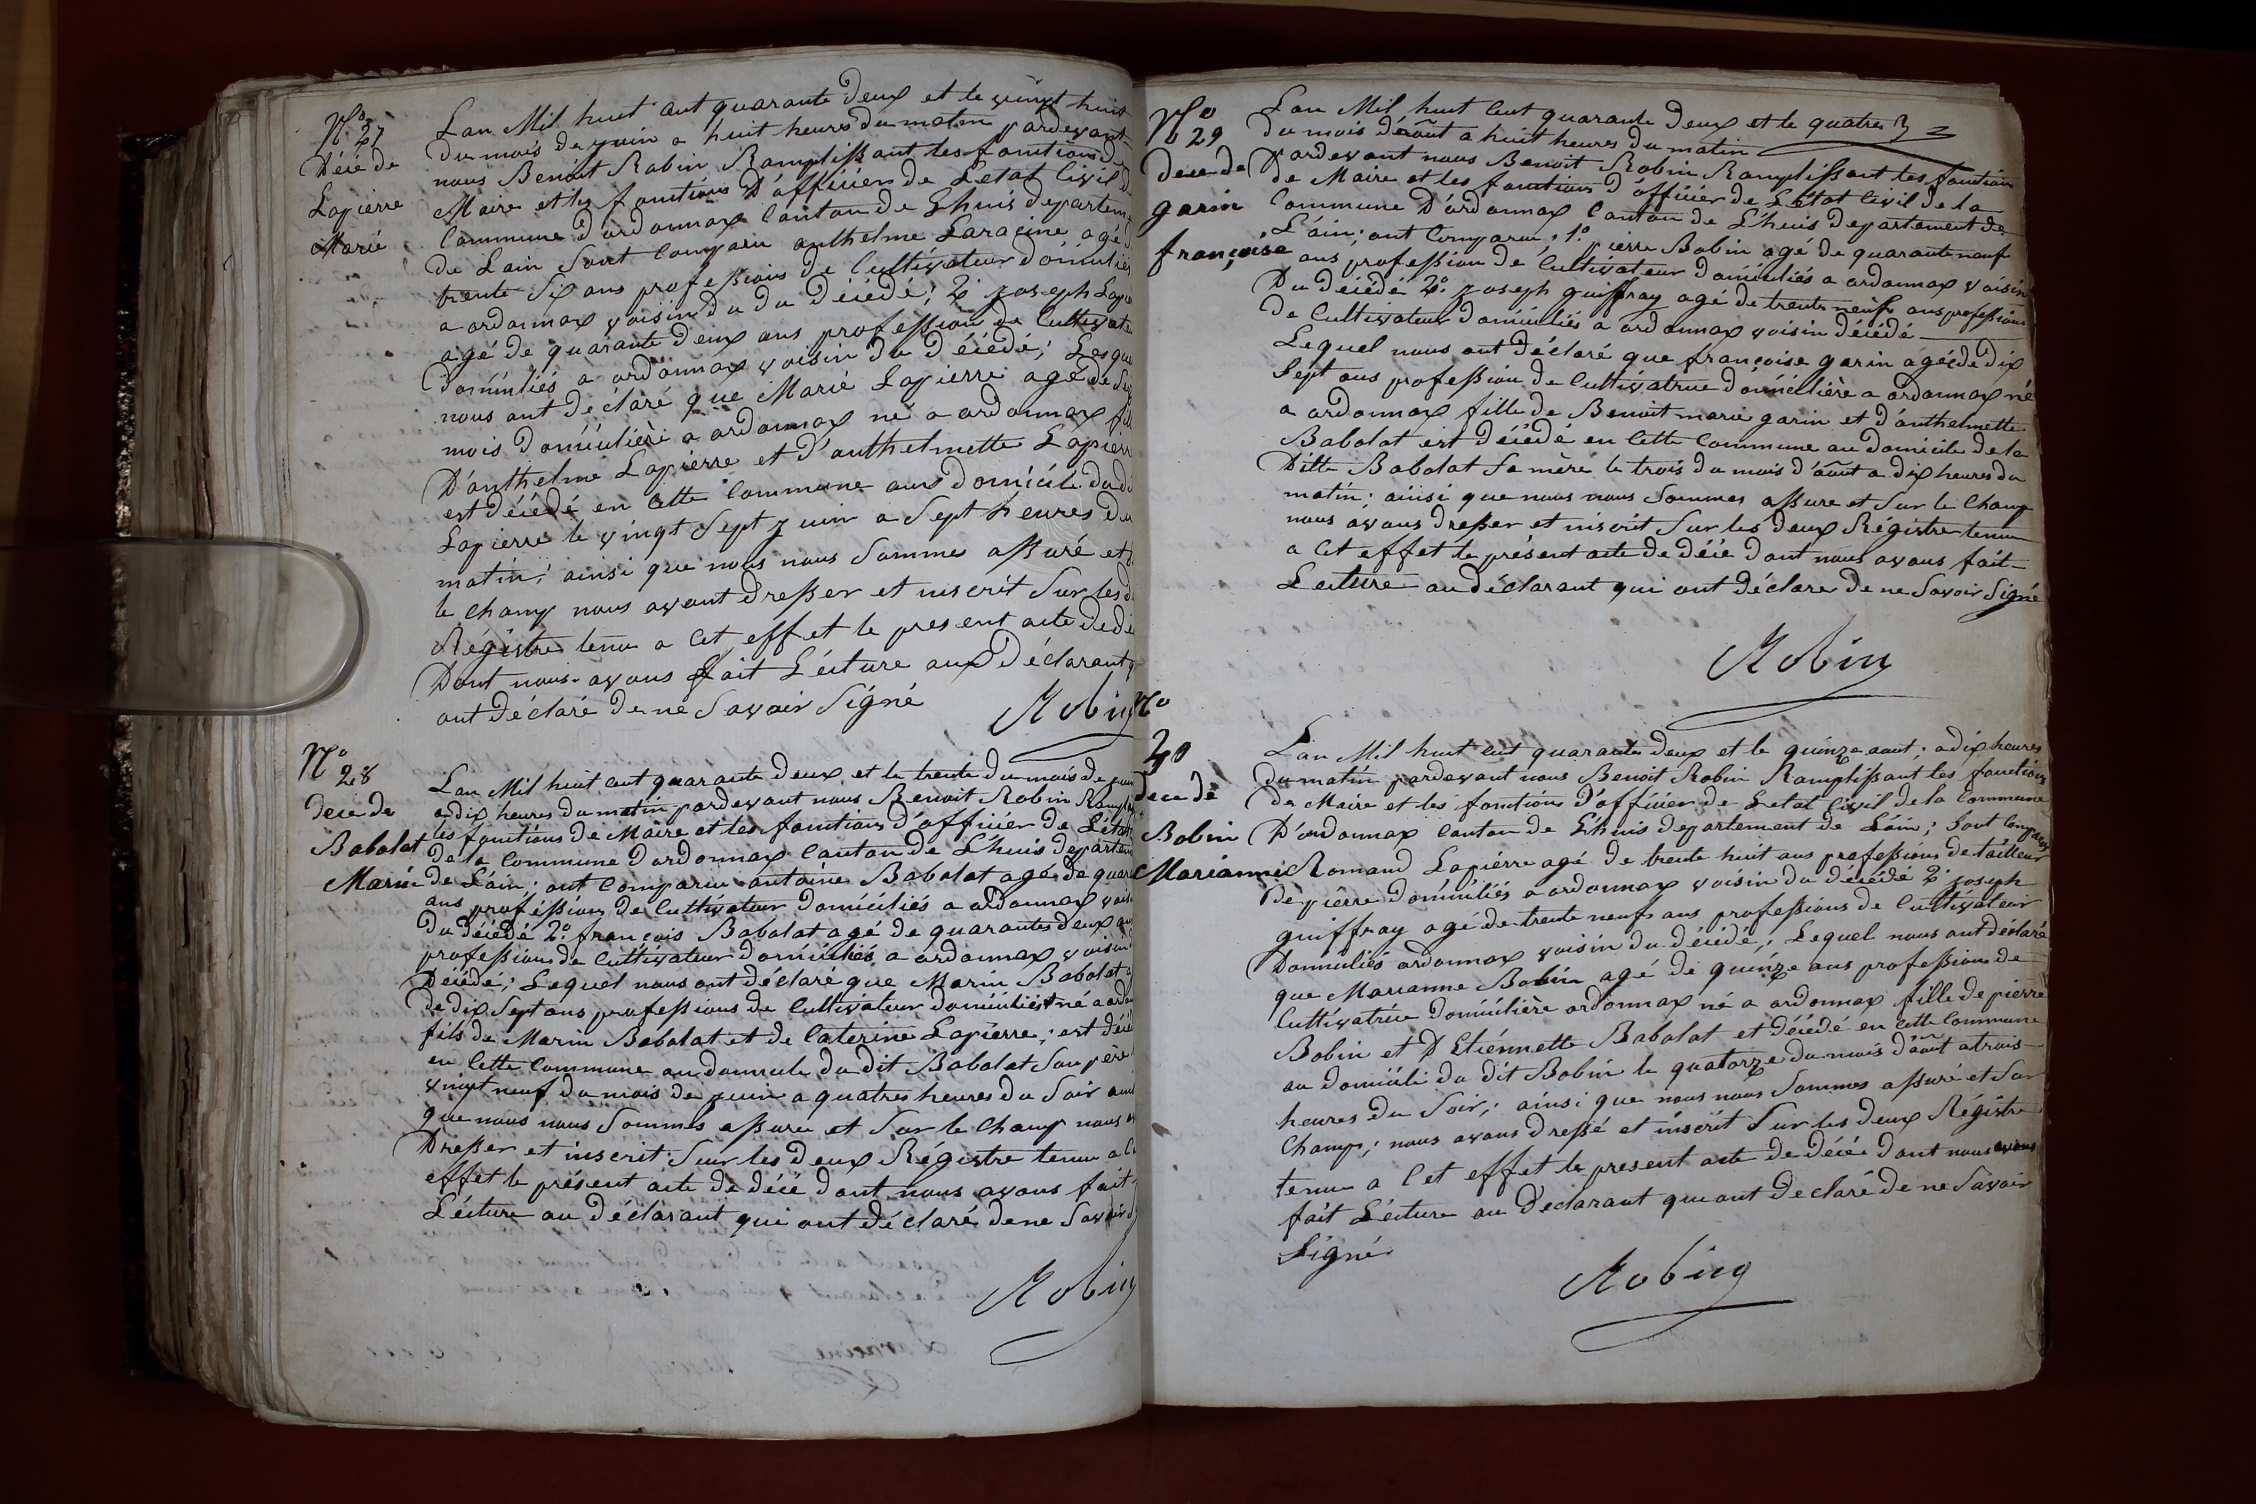 N.º 27
Décé de
Lapierre
Marie
Lan Mil huit Cent quarante deux et le vingt huit
du mois de juin a huit heures du matin pardevant
nous Benoit Robin Ramplissant les fonctions de
Maire et les fonctions D'officiier de Letat Civil d
Commune d'ordonnax Canton de Lhuis departem
de Lain Sont Comparu anthelme Laracine agé d
trente Six ans professions de Cultivateur domicilié
a ordonnax voisin du du Décédé; 2º joseph Lapie
agé de quarante deux ans profession de Cultivate
domiciliés a ordonnax voisin du décédé; Lesque
nous ont déclaré que Marie Lapierre agé de Sep
mois domicilière a ordonnax né a ordonnax fill
D'anthelme Lapierre et d'anthelmette Lapierr
est décédé en Cette Commune aux domicile du d
Lapierre le vingt Sept juin a Sept heures du
matin; ainsi que nous nous Sommes assuré et
le Champ nous avont dresser et inscrit Sur les d
Régistre tenu a Cet effet le present acte de dé
Dont nous avons fait Lécture aux Déclarant q
ont déclaré de ne Savoir Signé
Robin
Nº 28
dece de
Babolat
Marin
Lan Mil huit Cent quarante deux et le trente du mois de juin
a dix heures du matin pardevant nous Benoit Robin Rampli
les fonctions de Maire et les fonctions d'officiier de Létat
de la Commune d'ordonnax Canton de Lhuis departem
de Láin; ont Comparu antoine Babolat agé de quar
ans proféssions de Cultivateur domiciliés a ordonnax vois
du décédé 2º françois Babolat agé de quarantes deux an
professions de Cultivateur domiciliés a ordonnax voisin
Décédé; Lequel nous ont déclaré que Marin Babolat
de dix Sept ans professions de Cultivateur domicilié né a ordo
fils de Marin Babolat et de Caterine Lapierre; est décé
en Cette Commune au domicile du dit Babolat Son père
vingt neuf du mois de juin a quatres heures du Soir ains
que nous nous Sommes assure et Sur le Champ nous av
Dresser et inscrit Sur les deux Régistre tenu a C
effet le présent acte de décé dont nous avons fait
Lécture au déclarant qui ont déclaré de ne Savoir
Robin
Nº 29
Dece de
garin
françoise
Lan Mil huit Cent quarante deux et le quatres
du mois d'août a huit heures du matin
Pardevant nous Benoit Robin Ramplissant les fonction
de Maire et les fonctions d'officiier de Létat Civil de la
Commune D'ordonnax Canton de Lhuis departement de
Láin; ont Comparu; 1º pierre Bobin agé de quarante neuf
ans profession de Cultivateur domiciliés a ordonnax voisin
Du décédé 2º joseph guiffray agé de trente neufs ans professions
de Cultivateur domiciliés a ordonnax voisin décédé
Lequel nous ont déclaré que françoise garin agée de dix
Sept ans profession de Cultivatrice domicilière a ordonnax né
a ordonnax fille de Benoit marie garin et d'anthelmette
Babolat est décédé en Cette Commune au domicile de la
Ditte Babolat Sa mère le trois du mois d'août a dix heures du
matin; ainsi que nous nous Sommes assure et Sur le Champ
nous avons dresser et inscrit Sur les deux Régistre tenu
a Cet effet le présent acte de décé dont nous avons fait
Lecture au déclarant qui ont déclarer de ne Savoir Signé
Robin
Nº
30
dece de
Bobin
Marianne
Lan Mil huit Cent quarante deux et le quinze aout; a dix heures
du matin pardevant nous Benoit Robin Ramplissant les fonctions
de Maire et les fonctions d'officiier de Letat Civil de la Commune
D'ordonnax Canton de Lhuis departement de Láin; Sont Comparu
Romand Lapierre agé de trente huit ans professions de tailleur
De pierre domiciliés a ordonnax voisin du décédé 2º joseph
guiffray agé de trente neufs ans professions de Cultivateur
Domiciliés ordonnax voisin du décédé; Lequel nous ont déclaré
que Marianne Bobin agé de quinze ans profession de
Cultivatrice domicilière ordonnax né a ordonnax fille de pierre
Bobin et D'Etiennette Babolat et décédé en Cette Commune
au domicile du dit Bobin le quatorze du mois d'août a trois
heures du Soir; ainsi que nous nous Sommes assuré et Sur
Champ; nous avons dressé et inscrit Sur les deux Régistre
tenu a Cet effet le present acte de décé dont nous avons
fait Lécture au Declarant qui ont déclaré de ne Savoir
Signé
Robin